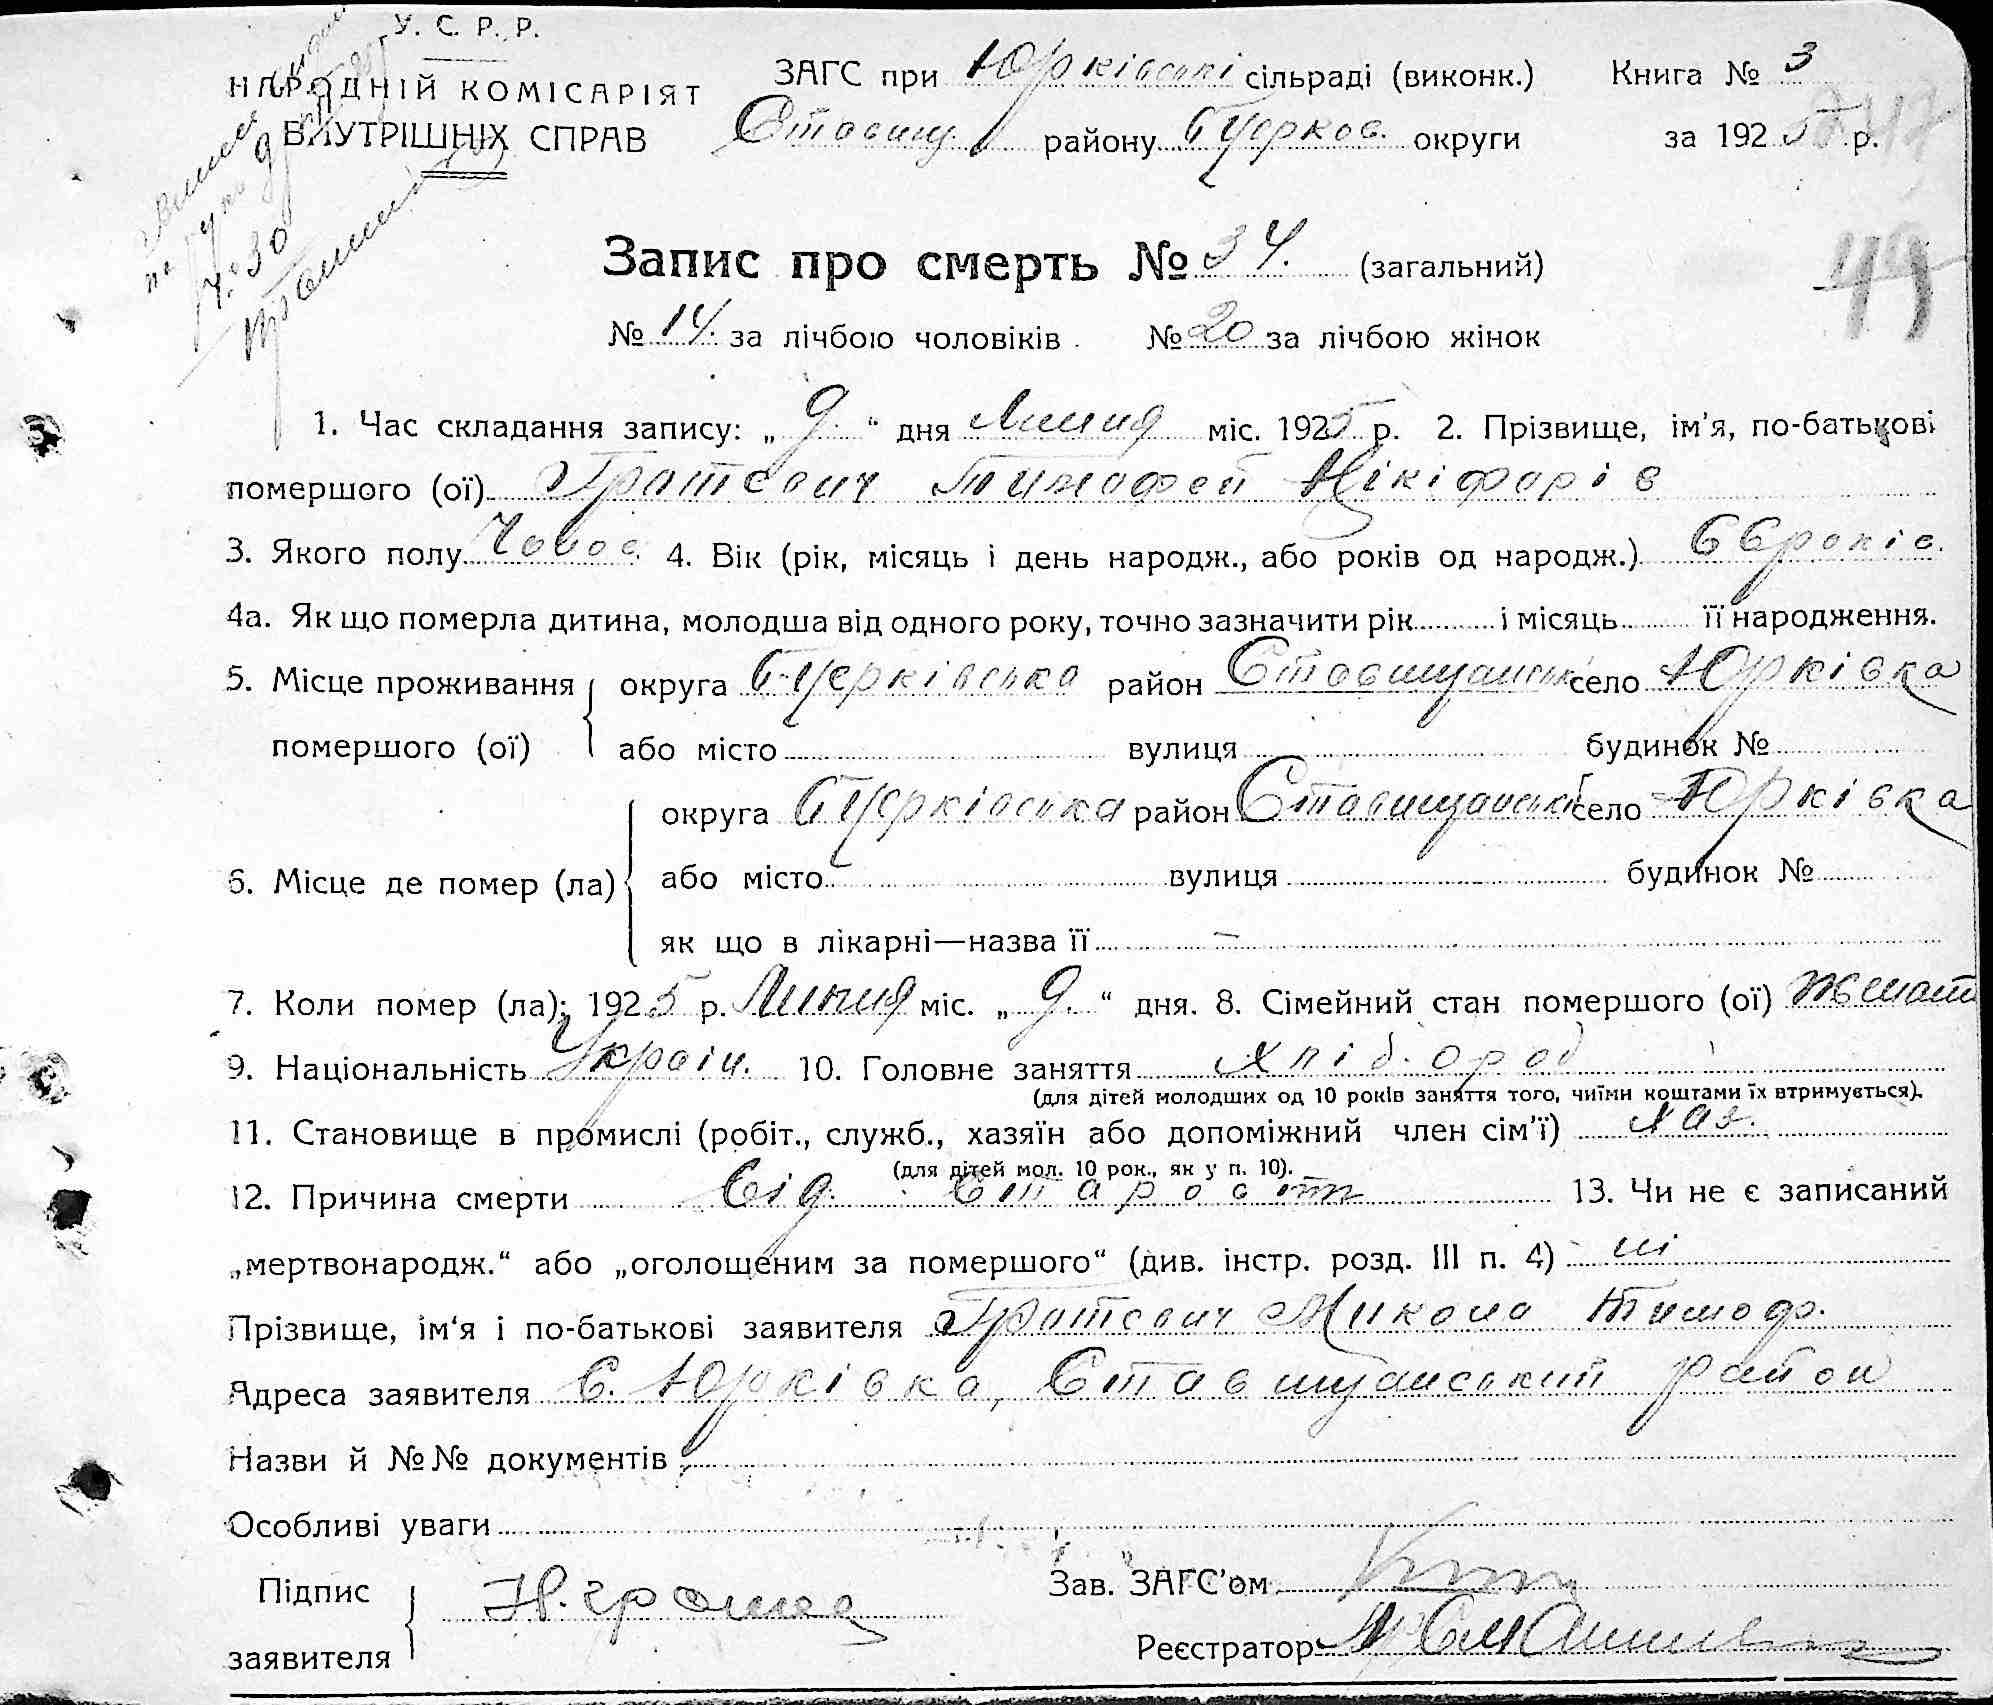 У. С. Р. Р.
НАРОДНІЙ КОМІСАРІЯТ
ВНУТРІШНІХ СПРАВ
ЗАГС при Юрківські сільраді (виконк.) Книга № 3
Ставищ. району Б Церков. округи за 1925 р.
49
Запис про смерть № 34. (загальний)
№ 14. за лічбою чоловіків. № 20 за лічбою жінок
1. Час складання запису: „ 9. “ дня Липня міс. 1925 р. 2. Прізвище, ім'я, по-батькові
помершого (ої) Тимофей Нікіфорів
3. Якого полу Чолов. 4. Вік (рік, місяць і день народж., або років од народж.) 66 років.
4а. Як що померла дитина, молодша від одного року, точно зазначити рік і місяць її народження.
5. Місце проживання округа Б-Церківська район Ставищанськ село Юрківка
помершого (ої) або місто вулиця будинок №
округа Б Церківська район Ставищанський село Юрківка
6. Місце де помер (ла) або місто вулиця будинок №
як що в лікарні—назва її —
7. Коли помер (ла): 1925 р. Липня міс. „ 9. “ дня. 8. Сімейний стан помершого (ої) Жонат
9. Національність Україн. 10. Головне заняття Хліб. ороб
(для дітей молодших од 10 років заняття того, чиїми коштами їх втримується).
11. Становище в промислі (робіт., служб., хазяїн або допоміжний член сім'ї) хаз.
(для дітей мол. 10 рок., як у п. 10).
12. Причина смерти Від старости 13. Чи не є записаний
„мертвонародж.“ або „оголошеним за помершого“ (див. інстр. розд. III п. 4) ні
Прізвище, ім'я і по-батькові заявителя Микола Тимоф.
Адреса заявителя С. Юрківка, Ставищанський район
Назви й №№ документів
Особливі уваги
Підпис
заявителя
Зав. ЗАГС'ом
Реєстратор